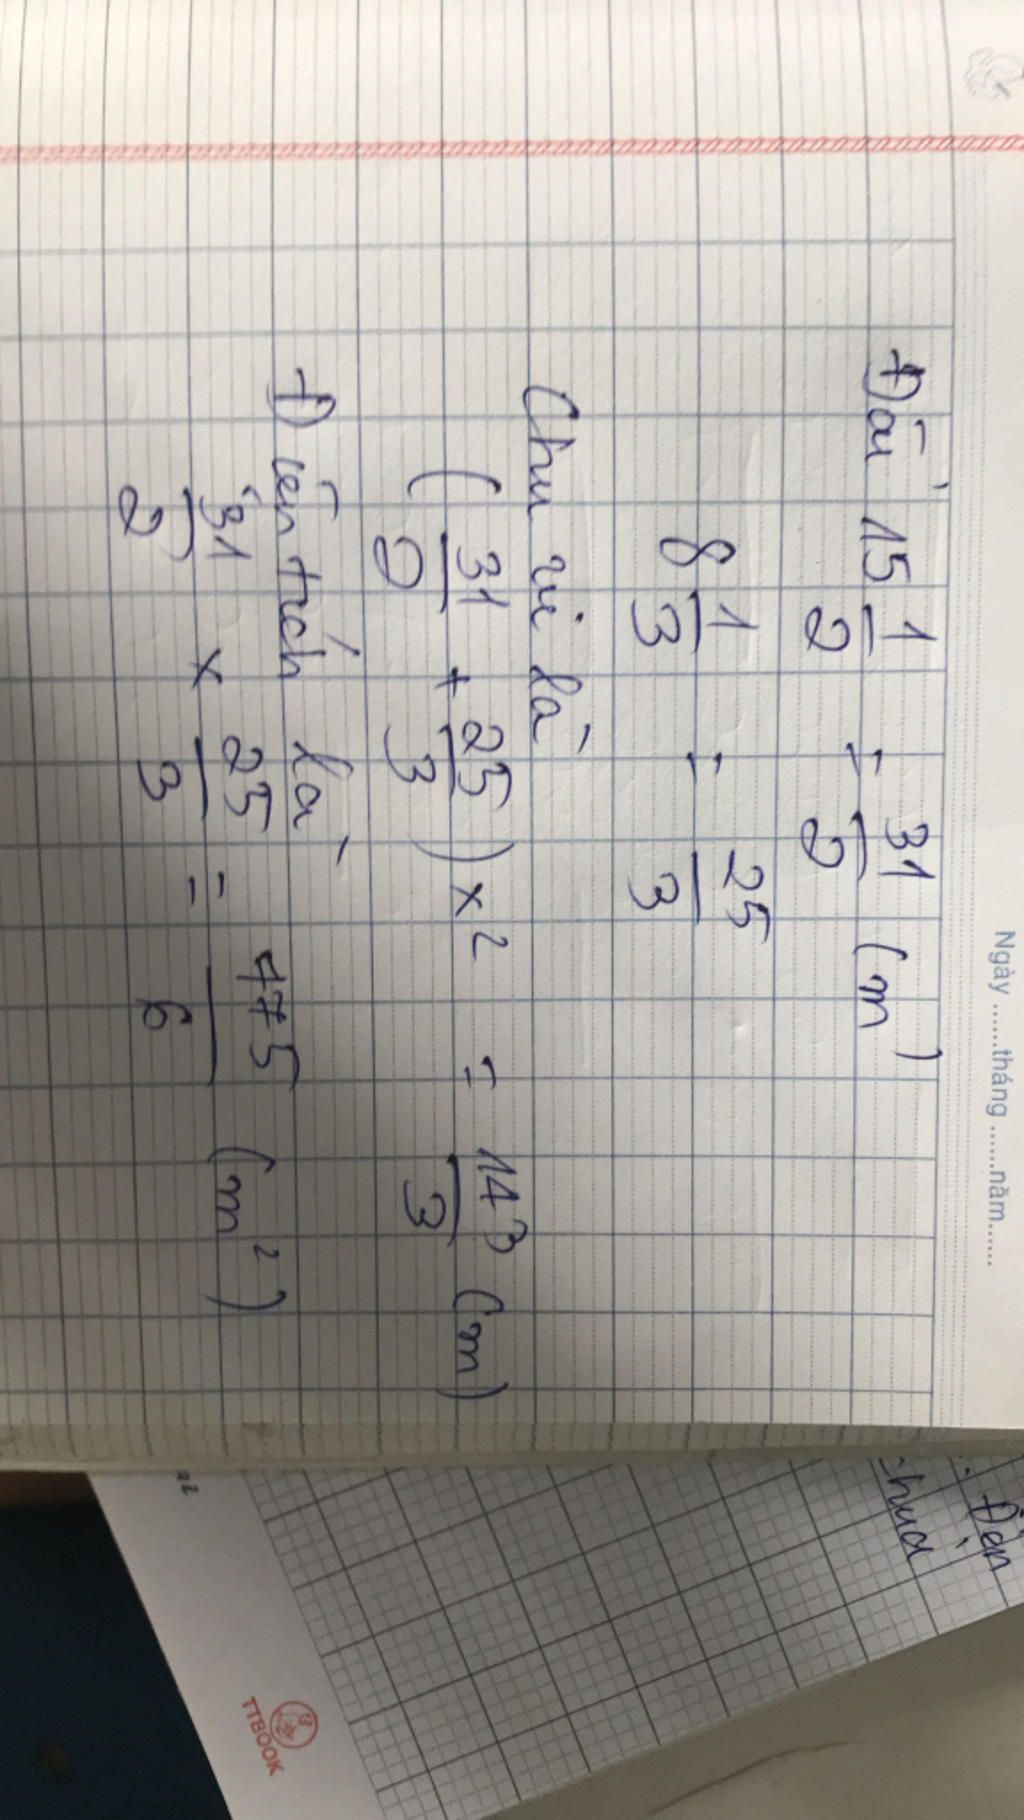 Ngày ......tháng ......năm......
Đổi 15 1/2 = 31/2 (m)
8 1/3 = 25/3
Chu vi là
(31/2 + 25/3) x 2 = 143/3 (m)
Diện tích là
31/2 x 25/3 = 775/6 (m²)
Đơn
TTBOOK